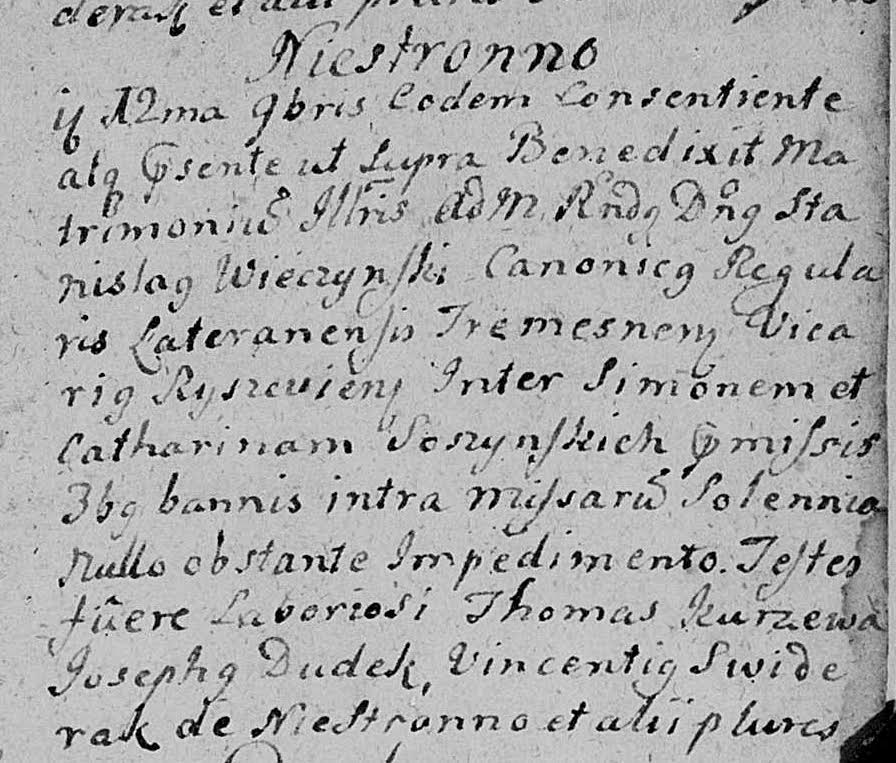 derak et alii plures
Niestronno
12ma 9bris Eodem Consentiente
atq p̃sente ut Supra Benedixit Ma
trimoniũ Illris adm Rndq Dnq Sta
nislaq Wieczynski Canonicq Regula
ris Lateranensis Tremesnens Vica
riq Ryszeviens Inter Simonem et
Catharinam Soszynskich p̃missis
3bq bannis intra Missarũ Solennia
Nullo obstante Impedimento. Testes
fũere Laboriosi Thomas Kurzewa
Josephq Dudek, Vincentiq Swide
rak de Niestronno et alii plures